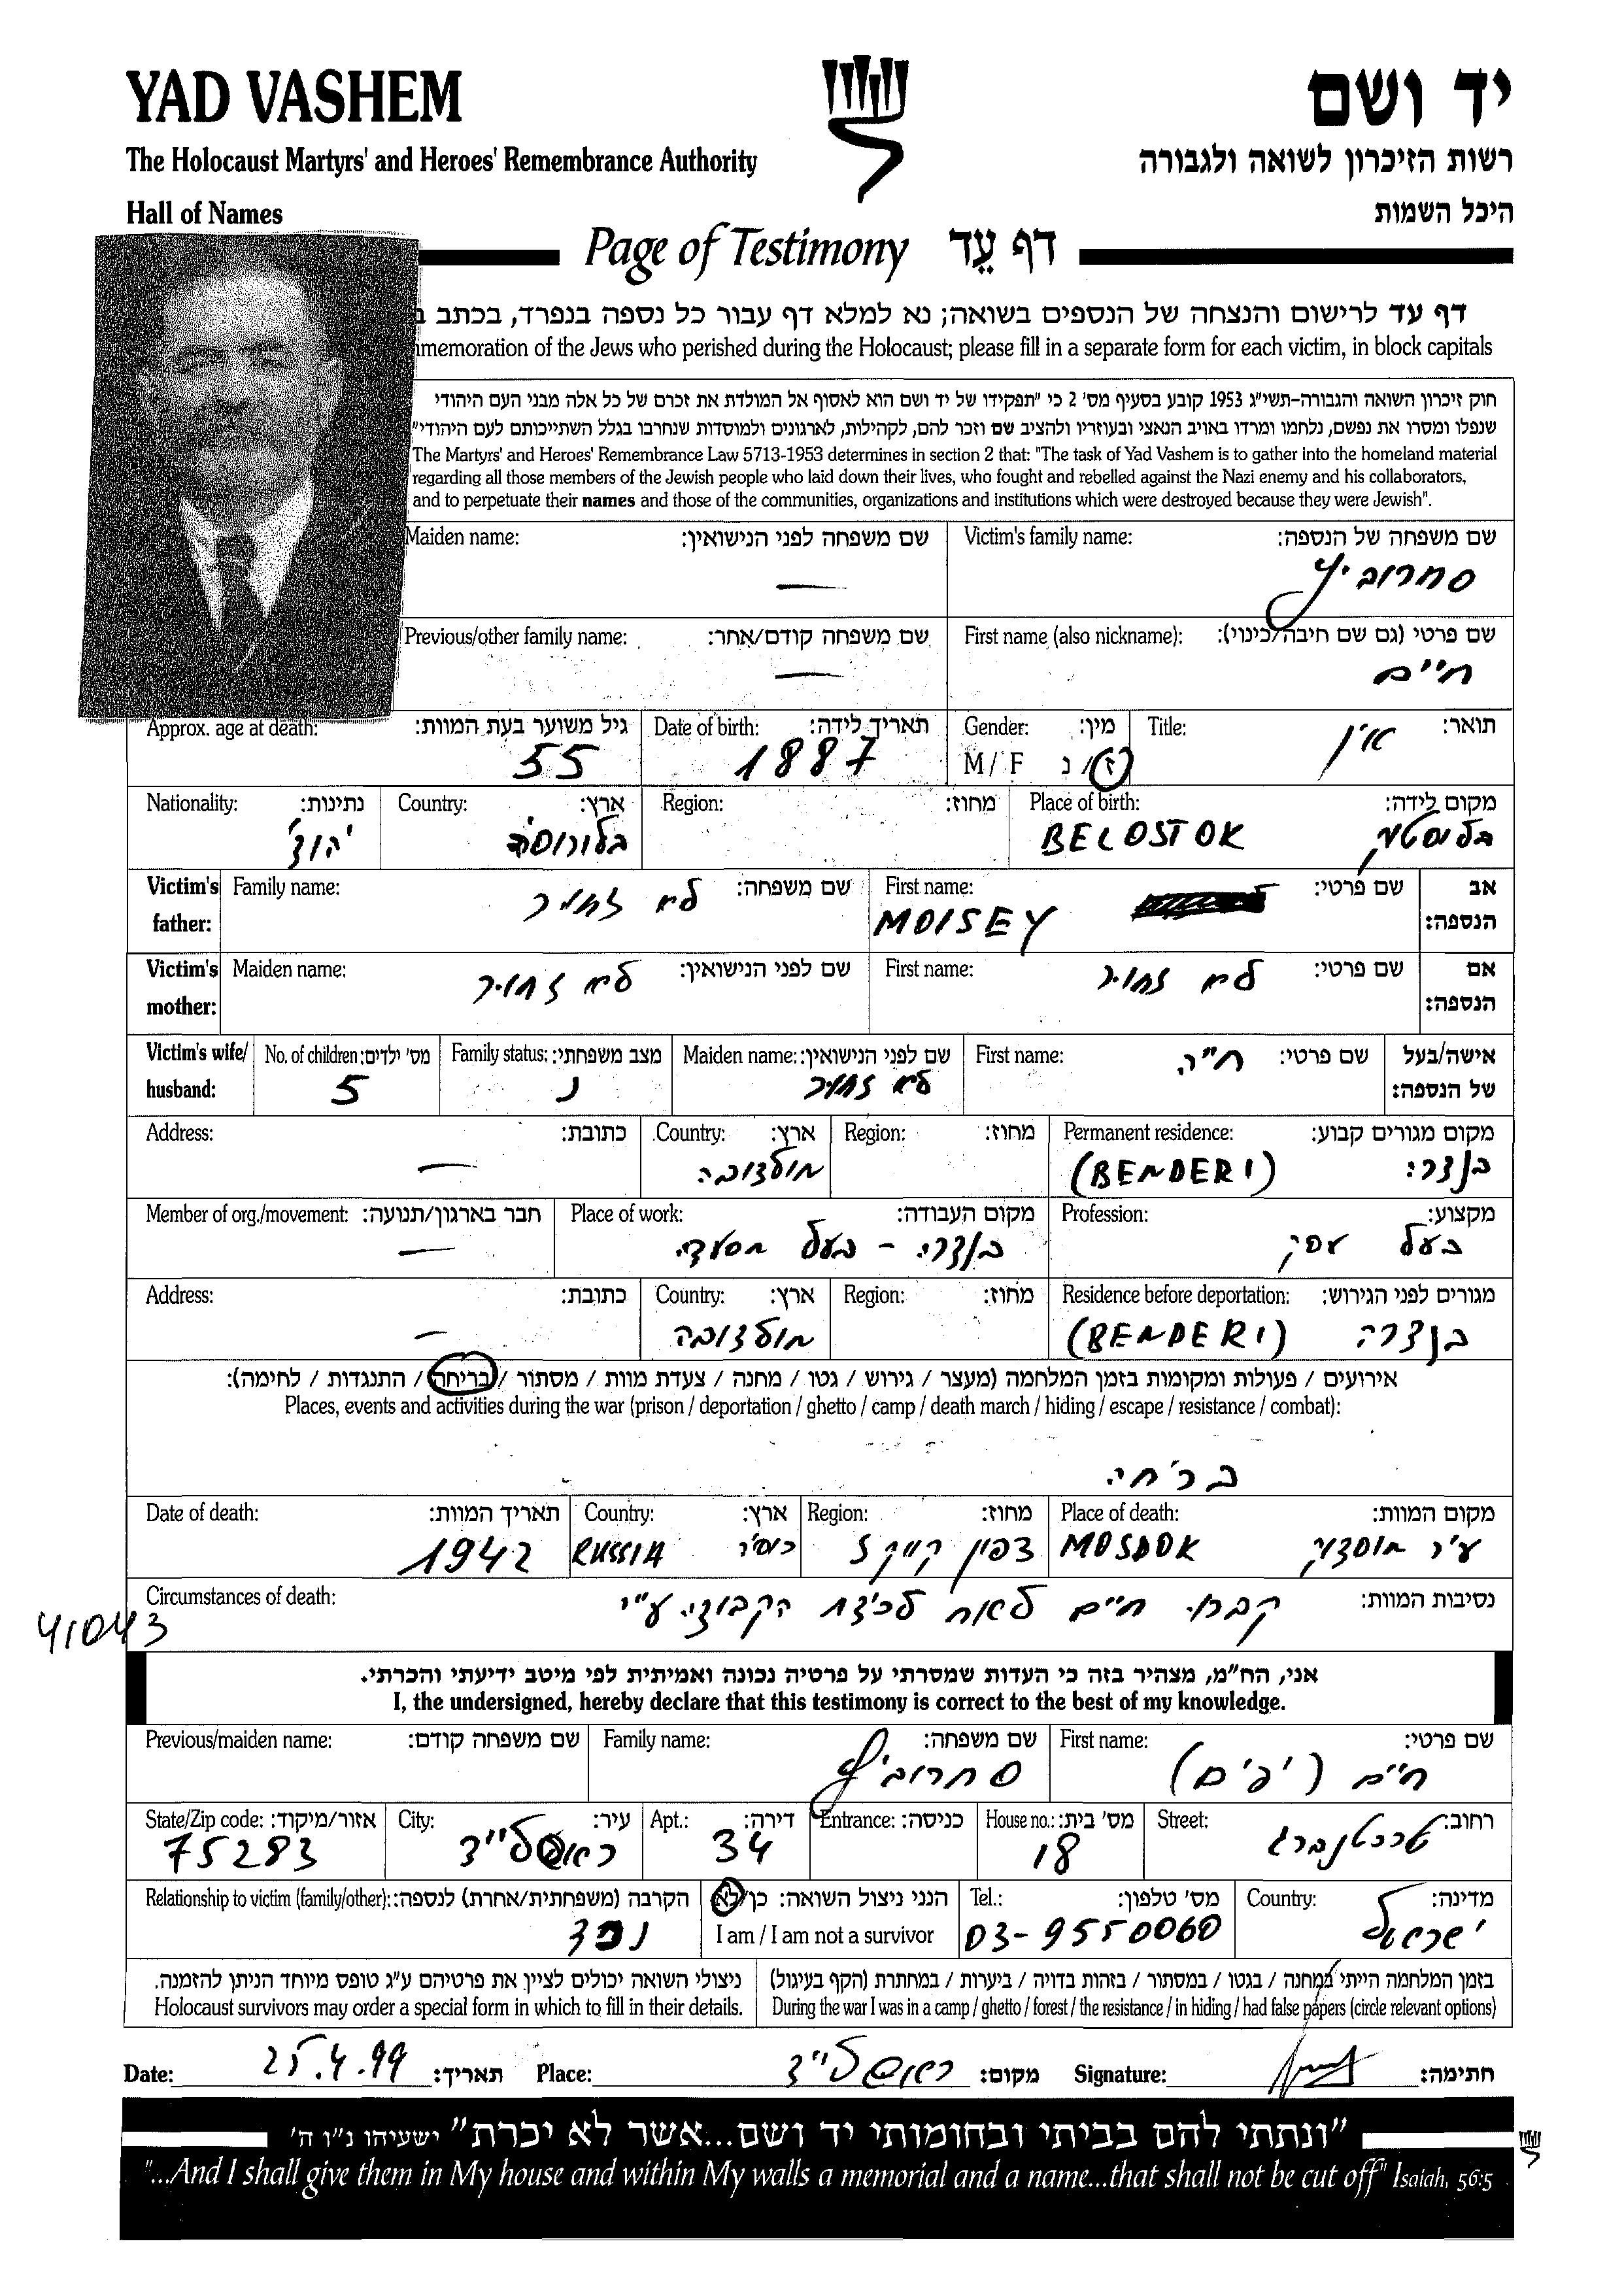 YAD VASHEM
יד ושם
The Holocaust Martyrs' and Heroes' Remembrance Authority
רשות הזיכרון לשואה ולגבורה
Hall of Names
היכל השמות
Page of Testimony דף עֵד
דף עד לרישום והנצחה של הנספים בשואה; נא למלא דף עבור כל נספה בנפרד, בכתב
memoration of the Jews who perished during the Holocaust; please fill in a separate form for each victim, in block capitals
חוק זיכרון השואה והגבורה-תשי"ג 1953 קובע בסעיף מס' 2 כי "תפקידו של יד ושם הוא לאסוף אל המולדת את זכרם של כל אלה מבני העם היהודי
שנפלו ומסרו את נפשם, נלחמו ומרדו באויב הנאצי ובעוזריו ולהציב שם וזכר להם, לקהילות, לארגונים ולמוסדות שנחרבו בגלל השתייכותם לעם היהודי"
The Martyrs' and Heroes' Remembrance Law 5713-1953 determines in section 2 that: "The task of Yad Vashem is to gather into the homeland material
regarding all those members of the Jewish people who laid down their lives, who fought and rebelled against the Nazi enemy and his collaborators,
and to perpetuate their names and those of the communities, organizations and institutions which were destroyed because they were Jewish".
Maiden name: שם משפחה לפני הנישואין: Victim's family name: שם משפחה של הנספה:
— סחרוביץ
Previous/other family name: שם משפחה קודם/אחר: First name (also nickname): שם פרטי (גם שם חיבה/כינוי):
— חיים
Approx. age at death: גיל משוער בעת המוות: Date of birth: תאריך לידה: Gender: מין: Title: תואר:
55 1887 M / F ז / נ אין
Nationality: נתינות: Country: ארץ: Region: מחוז: Place of birth: מקום לידה:
יהודי בלורוסיה BELOSTOK בלוסטוק
Victim's Family name: שם משפחה: First name: שם פרטי: אב
father: לא זכור MOISEY הנספה:
Victim's Maiden name: שם לפני הנישואין: First name: שם פרטי: אם
mother: לא זכור לא זכור הנספה:
Victim's wife/ No. of children: מס' ילדים: Family status: מצב משפחתי: Maiden name: שם לפני הנישואין: First name: שם פרטי: חיה אישה/בעל
husband: 5 נ לא זכור של הנספה:
Address: כתובת: Country: ארץ: Region: מחוז: Permanent residence: מקום מגורים קבוע:
— מולדובה (BENDERI) בנדרי
Member of org./movement: חבר בארגון/תנועה: Place of work: מקום העבודה: Profession: מקצוע:
— בנדרי - בעל מסעדה בעל עסק
Address: כתובת: Country: ארץ: Region: מחוז: Residence before deportation: מגורים לפני הגירוש:
— מולדובה (BENDERI) בנדרה
אירועים / פעולות ומקומות בזמן המלחמה (מעצר / גירוש / גטו / מחנה / צעדת מוות / מסתור / בריחה / התנגדות / לחימה):
Places, events and activities during the war (prison / deportation / ghetto / camp / death march / hiding / escape / resistance / combat):
בריחה
Date of death: תאריך המוות: Country: ארץ: Region: מחוז: Place of death: מקום המוות:
1942 RUSSIA רוסיה צפון קווקז MOSDOK עיר מוסדוק
Circumstances of death: נסיבות המוות:
קברו חיים ע"י
41043
אני, הח"מ, מצהיר בזה כי העדות שמסרתי על פרטיה נכונה ואמיתית לפי מיטב ידיעתי והכרתי.
I, the undersigned, hereby declare that this testimony is correct to the best of my knowledge.
Previous/maiden name: שם משפחה קודם: Family name: שם משפחה: First name: שם פרטי:
סחרוביץ חיים (יפים)
State/Zip code: אזור/מיקוד: City: עיר: Apt.: דירה: Entrance: כניסה: House no.: מס' בית: Street: רחוב:
75283 ראשל"צ 34 18 טרכטנברג
Relationship to victim (family/other): הקרבה (משפחתית/אחרת) לנספה: הנני ניצול השואה: כן/לא Tel.: מס' טלפון: Country: מדינה:
נכד I am / I am not a survivor 03-9550060 ישראל
בזמן המלחמה הייתי במחנה / בגטו / במסתור / בזהות בדויה / ביערות / במחתרת (הקף בעיגול)
ניצולי השואה יכולים לציין את פרטיהם ע"ג טופס מיוחד הניתן להזמנה.
Holocaust survivors may order a special form in which to fill in their details. During the war I was in a camp / ghetto / forest / the resistance / in hiding / had false papers (circle relevant options)
Date: 25.4.99 תאריך: Place: ראשל"צ מקום: Signature: חתימה:
"ונתתי להם בביתי ובחומותי יד ושם...אשר לא יכרת" ישעיהו נ"ו ה'
"...And I shall give them in My house and within My walls a memorial and a name...that shall not be cut off" Isaiah, 56:5